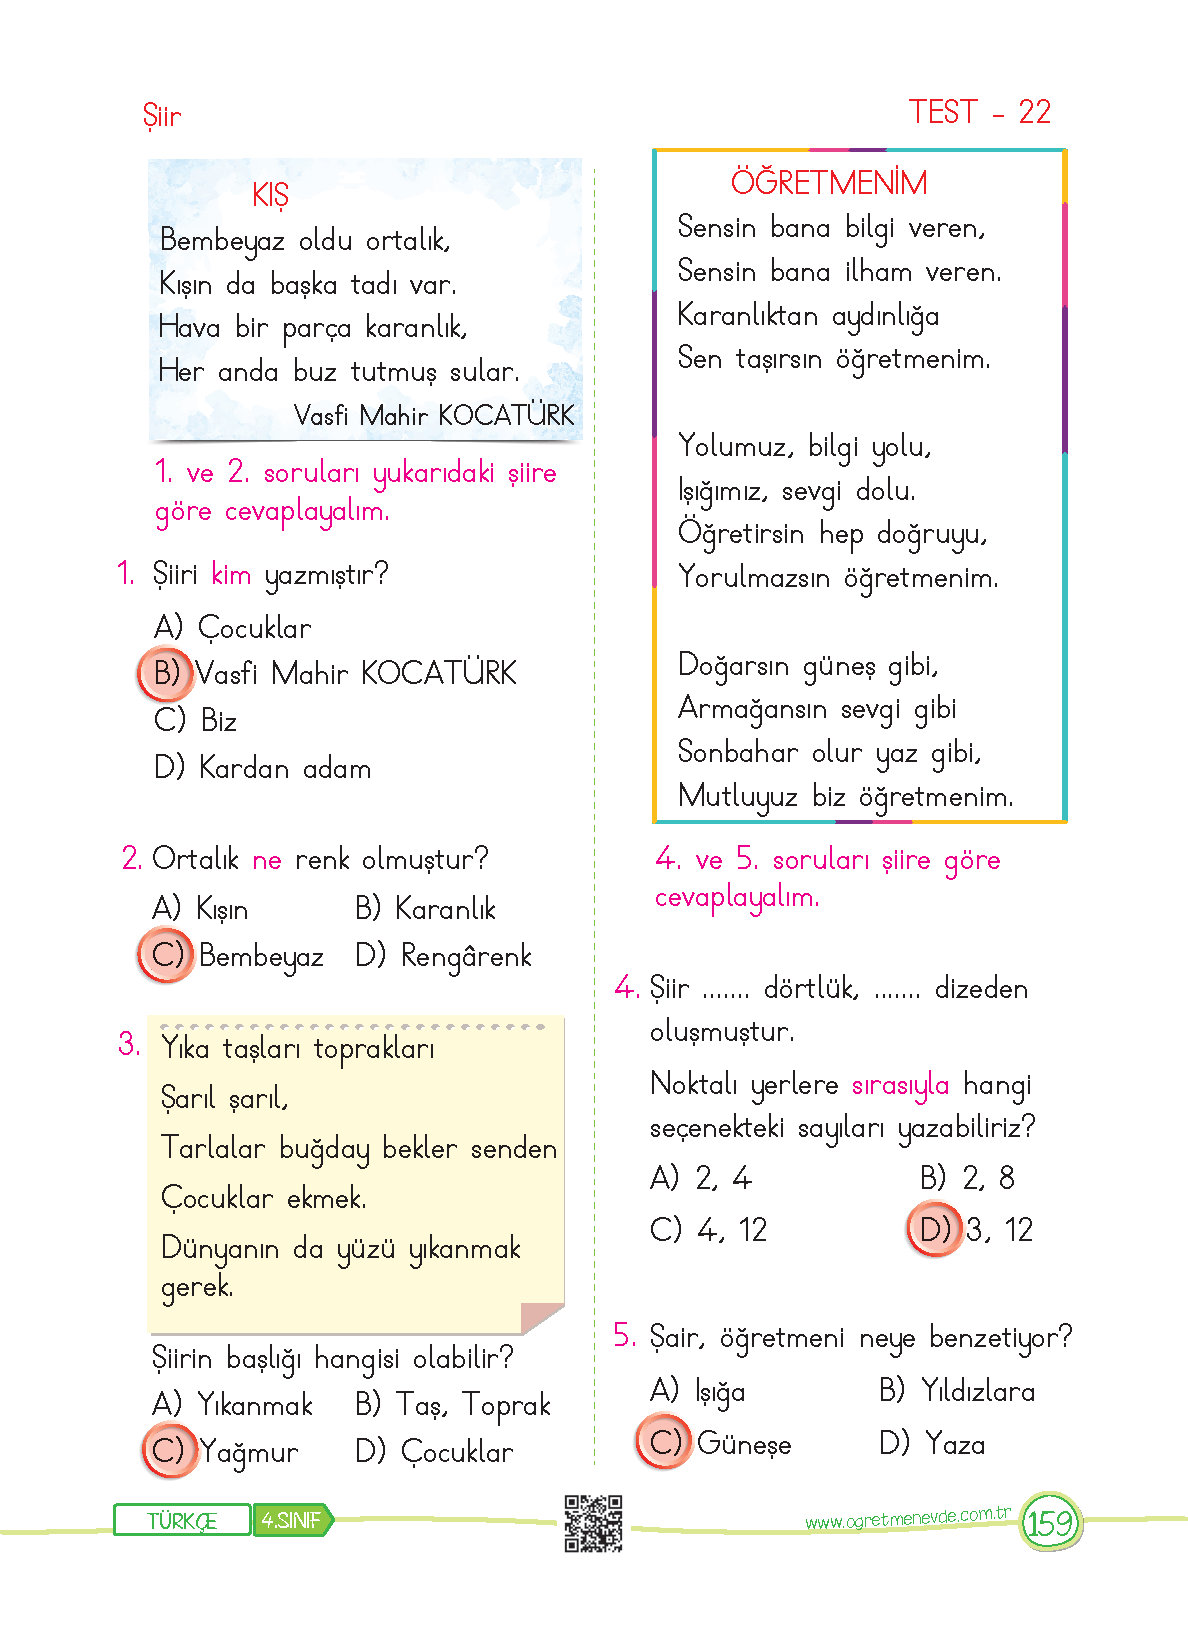 Şiir
TEST - 22
KIŞ
Bembeyaz oldu ortalık,
Kışın da başka tadı var.
Hava bir parça karanlık,
Her anda buz tutmuş sular.
Vasfi Mahir KOCATÜRK
1. ve 2. soruları yukarıdaki şiire
göre cevaplayalım.
1. Şiiri kim yazmıştır?
A) Çocuklar
B) Vasfi Mahir KOCATÜRK
C) Biz
D) Kardan adam
2. Ortalık ne renk olmuştur?
A) Kışın B) Karanlık
C) Bembeyaz D) Rengârenk
3. Yıka taşları toprakları
Şarıl şarıl,
Tarlalar buğday bekler senden
Çocuklar ekmek.
Dünyanın da yüzü yıkanmak
gerek.
Şiirin başlığı hangisi olabilir?
A) Yıkanmak B) Taş, Toprak
C) Yağmur D) Çocuklar
ÖĞRETMENİM
Sensin bana bilgi veren,
Sensin bana ilham veren.
Karanlıktan aydınlığa
Sen taşırsın öğretmenim.
Yolumuz, bilgi yolu,
Işığımız, sevgi dolu.
Öğretirsin hep doğruyu,
Yorulmazsın öğretmenim.
Doğarsın güneş gibi,
Armağansın sevgi gibi
Sonbahar olur yaz gibi,
Mutluyuz biz öğretmenim.
4. ve 5. soruları şiire göre
cevaplayalım.
4. Şiir ....... dörtlük, ....... dizeden
oluşmuştur.
Noktalı yerlere sırasıyla hangi
seçenekteki sayıları yazabiliriz?
A) 2, 4 B) 2, 8
C) 4, 12 D) 3, 12
5. Şair, öğretmeni neye benzetiyor?
A) Işığa B) Yıldızlara
C) Güneşe D) Yaza
TÜRKÇE 4.SINIF
www.ogretmenevde.com.tr 159